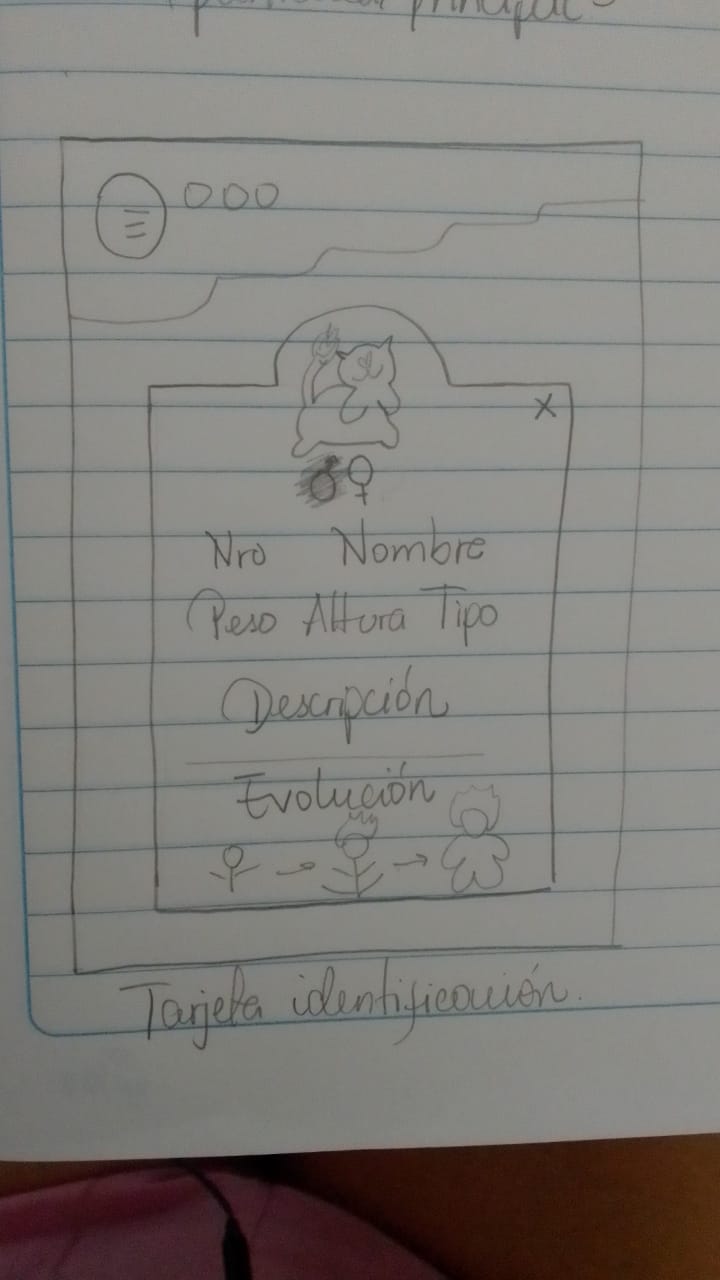 principal
X
Nro Nombre
Peso Altura Tipo
Descripción
Evolución
Tarjeta identificación.